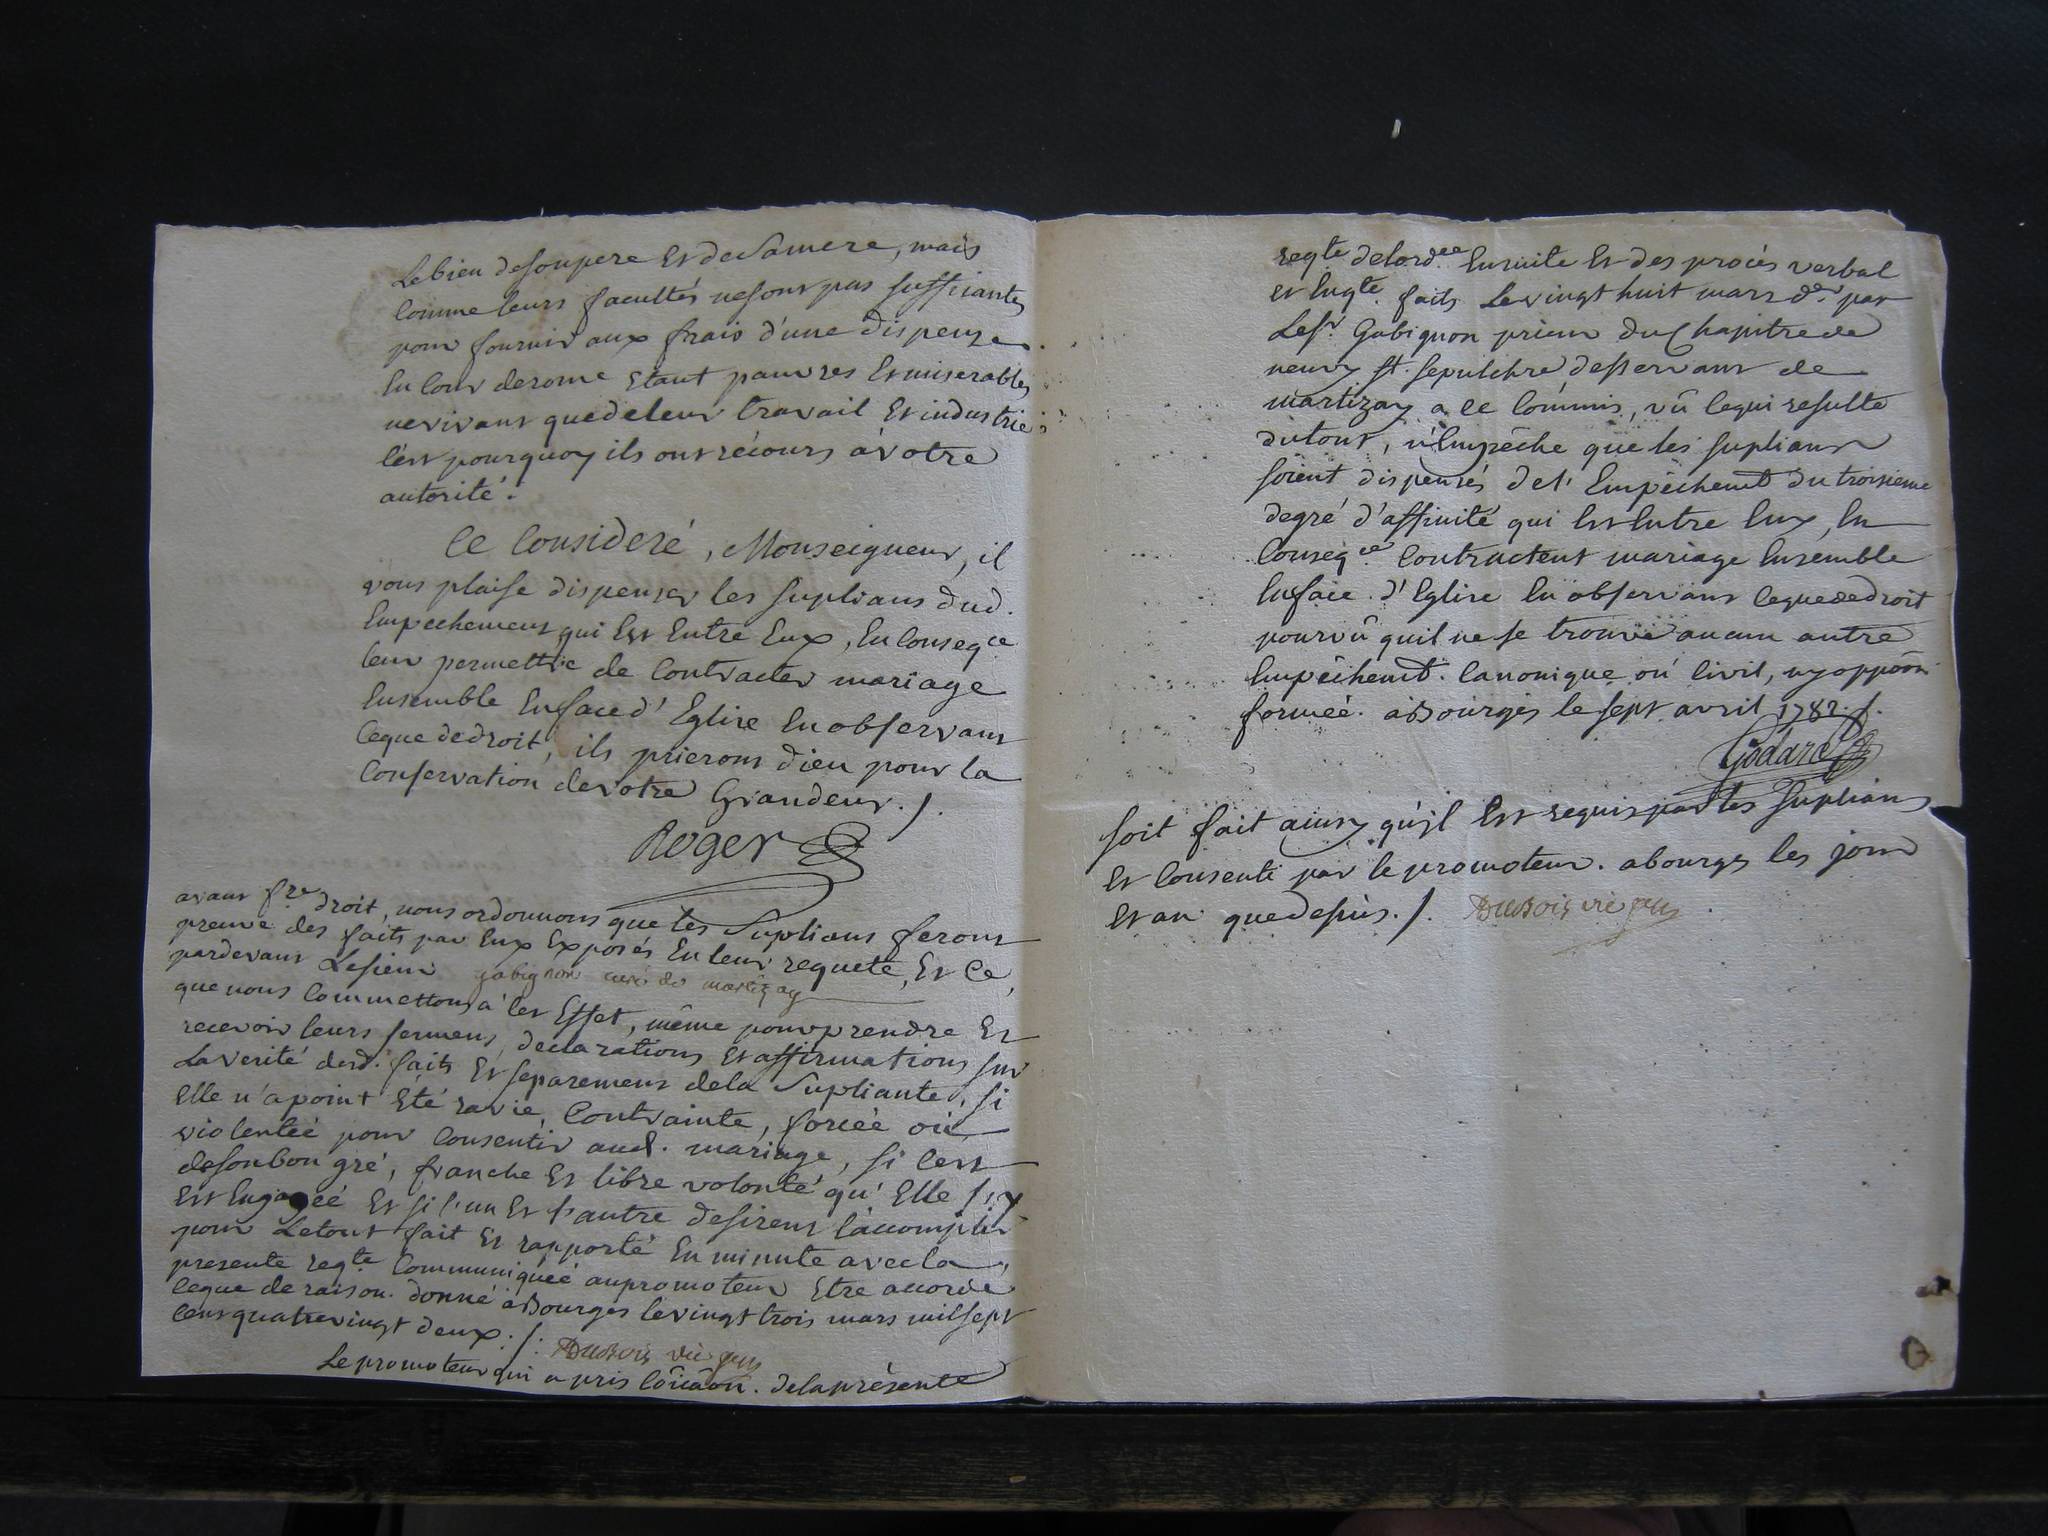 Le bien de son pere Et de Sa mere, mais
Comme leurs facultés ne sont pas suffisantes
pour fournir aux frais d'une dispense
En Cour de rome Etant pauvres Et miserables
ne vivant que de leur travail Et industrie
C'est pourquoy ils ont récours à Votre
autorité.
Ce Consideré, Monseigneur, il
vous plaise dispenser les Suplians dud.
Empechement qui Est Entre Eux, En Conseqce
leur permettre de Contracter mariage
Ensemble En face d'Eglise En observant
Ce que de droit, ils prieront dieu pour la
Conservation de votre Grandeur. /.
Roger
avant fre droit, nous ordonnons que les Suplians feront
preuve des faits par Eux Exposés En leur requete, Et Ce,
pardevant Le sieur gabignon curé de martizay
que nous Commettons à Cet Effet, même pour prendre Et
recevoir leurs sermens, declarations Et affirmations sur
La verité desd. faits Et separement de la Supliante, si
Elle n'a point Eté ravie, Contrainte, forcée ou
violentée pour Consentir aud. mariage, si C'est
de son bon gré, franche Et libre volonté qu'Elle s'y
Est Engagée Et si l'un Et l'autre desirent l'accomplir
pour Le tout fait Et rapporté En minute avec la
presente reqte Communiquée au promoteur Etre accordé
Ce que de raison. donné à Bourges le vingt trois mars mil sept
Cent quatrevingt deux. /. Dubois vic gen
Le promoteur qui a pris Coïcâon. de la présente
reqte de lordce Ensuite Et des procés verbal
Et Enqte. faits Le vingt huit mars der. par
Le sr. Gabignon prieur du Chapitre de
neuvy st. sepulchre desservant de
martizay a ce Commis, vû Ce qui resulte
du tout, n'Empêche que les suplians
soient dispensés de l'Empêchemt du troisieme
degré d'affinité qui Est Entre Eux, En
Conseqce. Contractent mariage Ensemble
En face d'Eglise En observant Ce que de droit
pourvû quil ne se trouve aucun autre
Empêchemt. Canonique ou Civil, ny opposn
formée. à Bourges le sept avril 1782. /.
Godard
Soit fait ainsy qu'jl Est requis par les Suplians
Et Consenti par le promoteur. a bourges les jour
Et an que dessus. /. Dubois vic gen